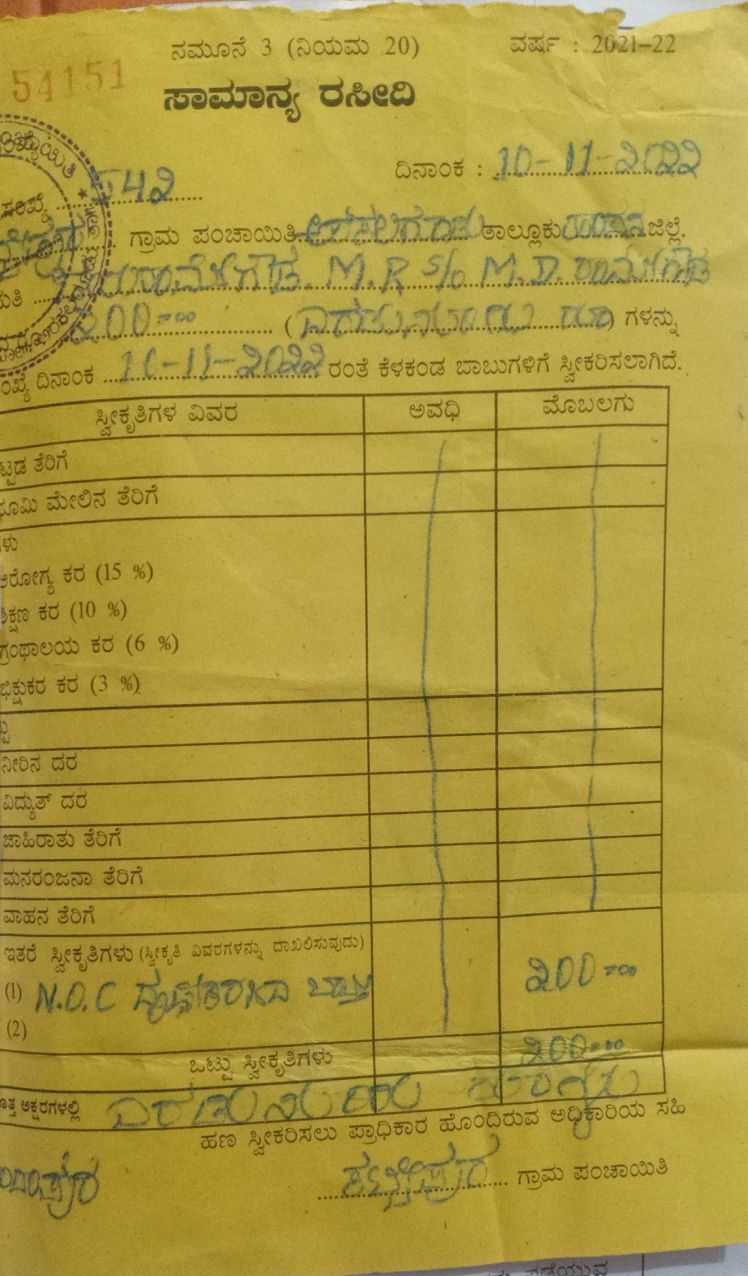 ನಮೂನೆ 3 (ನಿಯಮ 20) ವರ್ಷ : 2021-22
54151
ಸಾಮಾನ್ಯ ರಸೀದಿ
ದಿನಾಂಕ : 10-11-2022
542
ಗ್ರಾಮ ಪಂಚಾಯಿತಿ ತಾಲ್ಲೂಕು ಹಾಸನ ಜಿಲ್ಲೆ.
M.R S/o M.D. ರಾಮೇಗೌಡ
200=00 (ಎರಡುನೂರು ರೂ) ಗಳನ್ನು
ದಿನಾಂಕ 10-11-2022 ರಂತೆ ಕೆಳಕಂಡ ಬಾಬುಗಳಿಗೆ ಸ್ವೀಕರಿಸಲಾಗಿದೆ.
ಸ್ವೀಕೃತಿಗಳ ವಿವರ ಅವಧಿ ಮೊಬಲಗು
ಟ್ಟಡ ತೆರಿಗೆ
ಭೂಮಿ ಮೇಲಿನ ತೆರಿಗೆ
ಗಳು
ಆರೋಗ್ಯ ಕರ (15 %)
ಶಿಕ್ಷಣ ಕರ (10 %)
ಗ್ರಂಥಾಲಯ ಕರ (6 %)
ಭಿಕ್ಷುಕರ ಕರ (3 %)
ನೀರಿನ ದರ
ವಿದ್ಯುತ್ ದರ
ಜಾಹಿರಾತು ತೆರಿಗೆ
ಮನರಂಜನಾ ತೆರಿಗೆ
ವಾಹನ ತೆರಿಗೆ
ಇತರೆ ಸ್ವೀಕೃತಿಗಳು (ಸ್ವೀಕೃತಿ ವಿವರಗಳನ್ನು ದಾಖಲಿಸುವುದು)
(1) N.O.C ದೃಢೀಕರಣದ ಬಾಬ್ತು 200=00
(2)
ಒಟ್ಟು ಸ್ವೀಕೃತಿಗಳು 200=00
ಅಕ್ಷರಗಳಲ್ಲಿ ಎರಡುನೂರು ರೂಗಳು
ಹಣ ಸ್ವೀಕರಿಸಲು ಪ್ರಾಧಿಕಾರ ಹೊಂದಿರುವ ಅಧಿಕಾರಿಯ ಸಹಿ
ಗ್ರಾಮ ಪಂಚಾಯಿತಿ